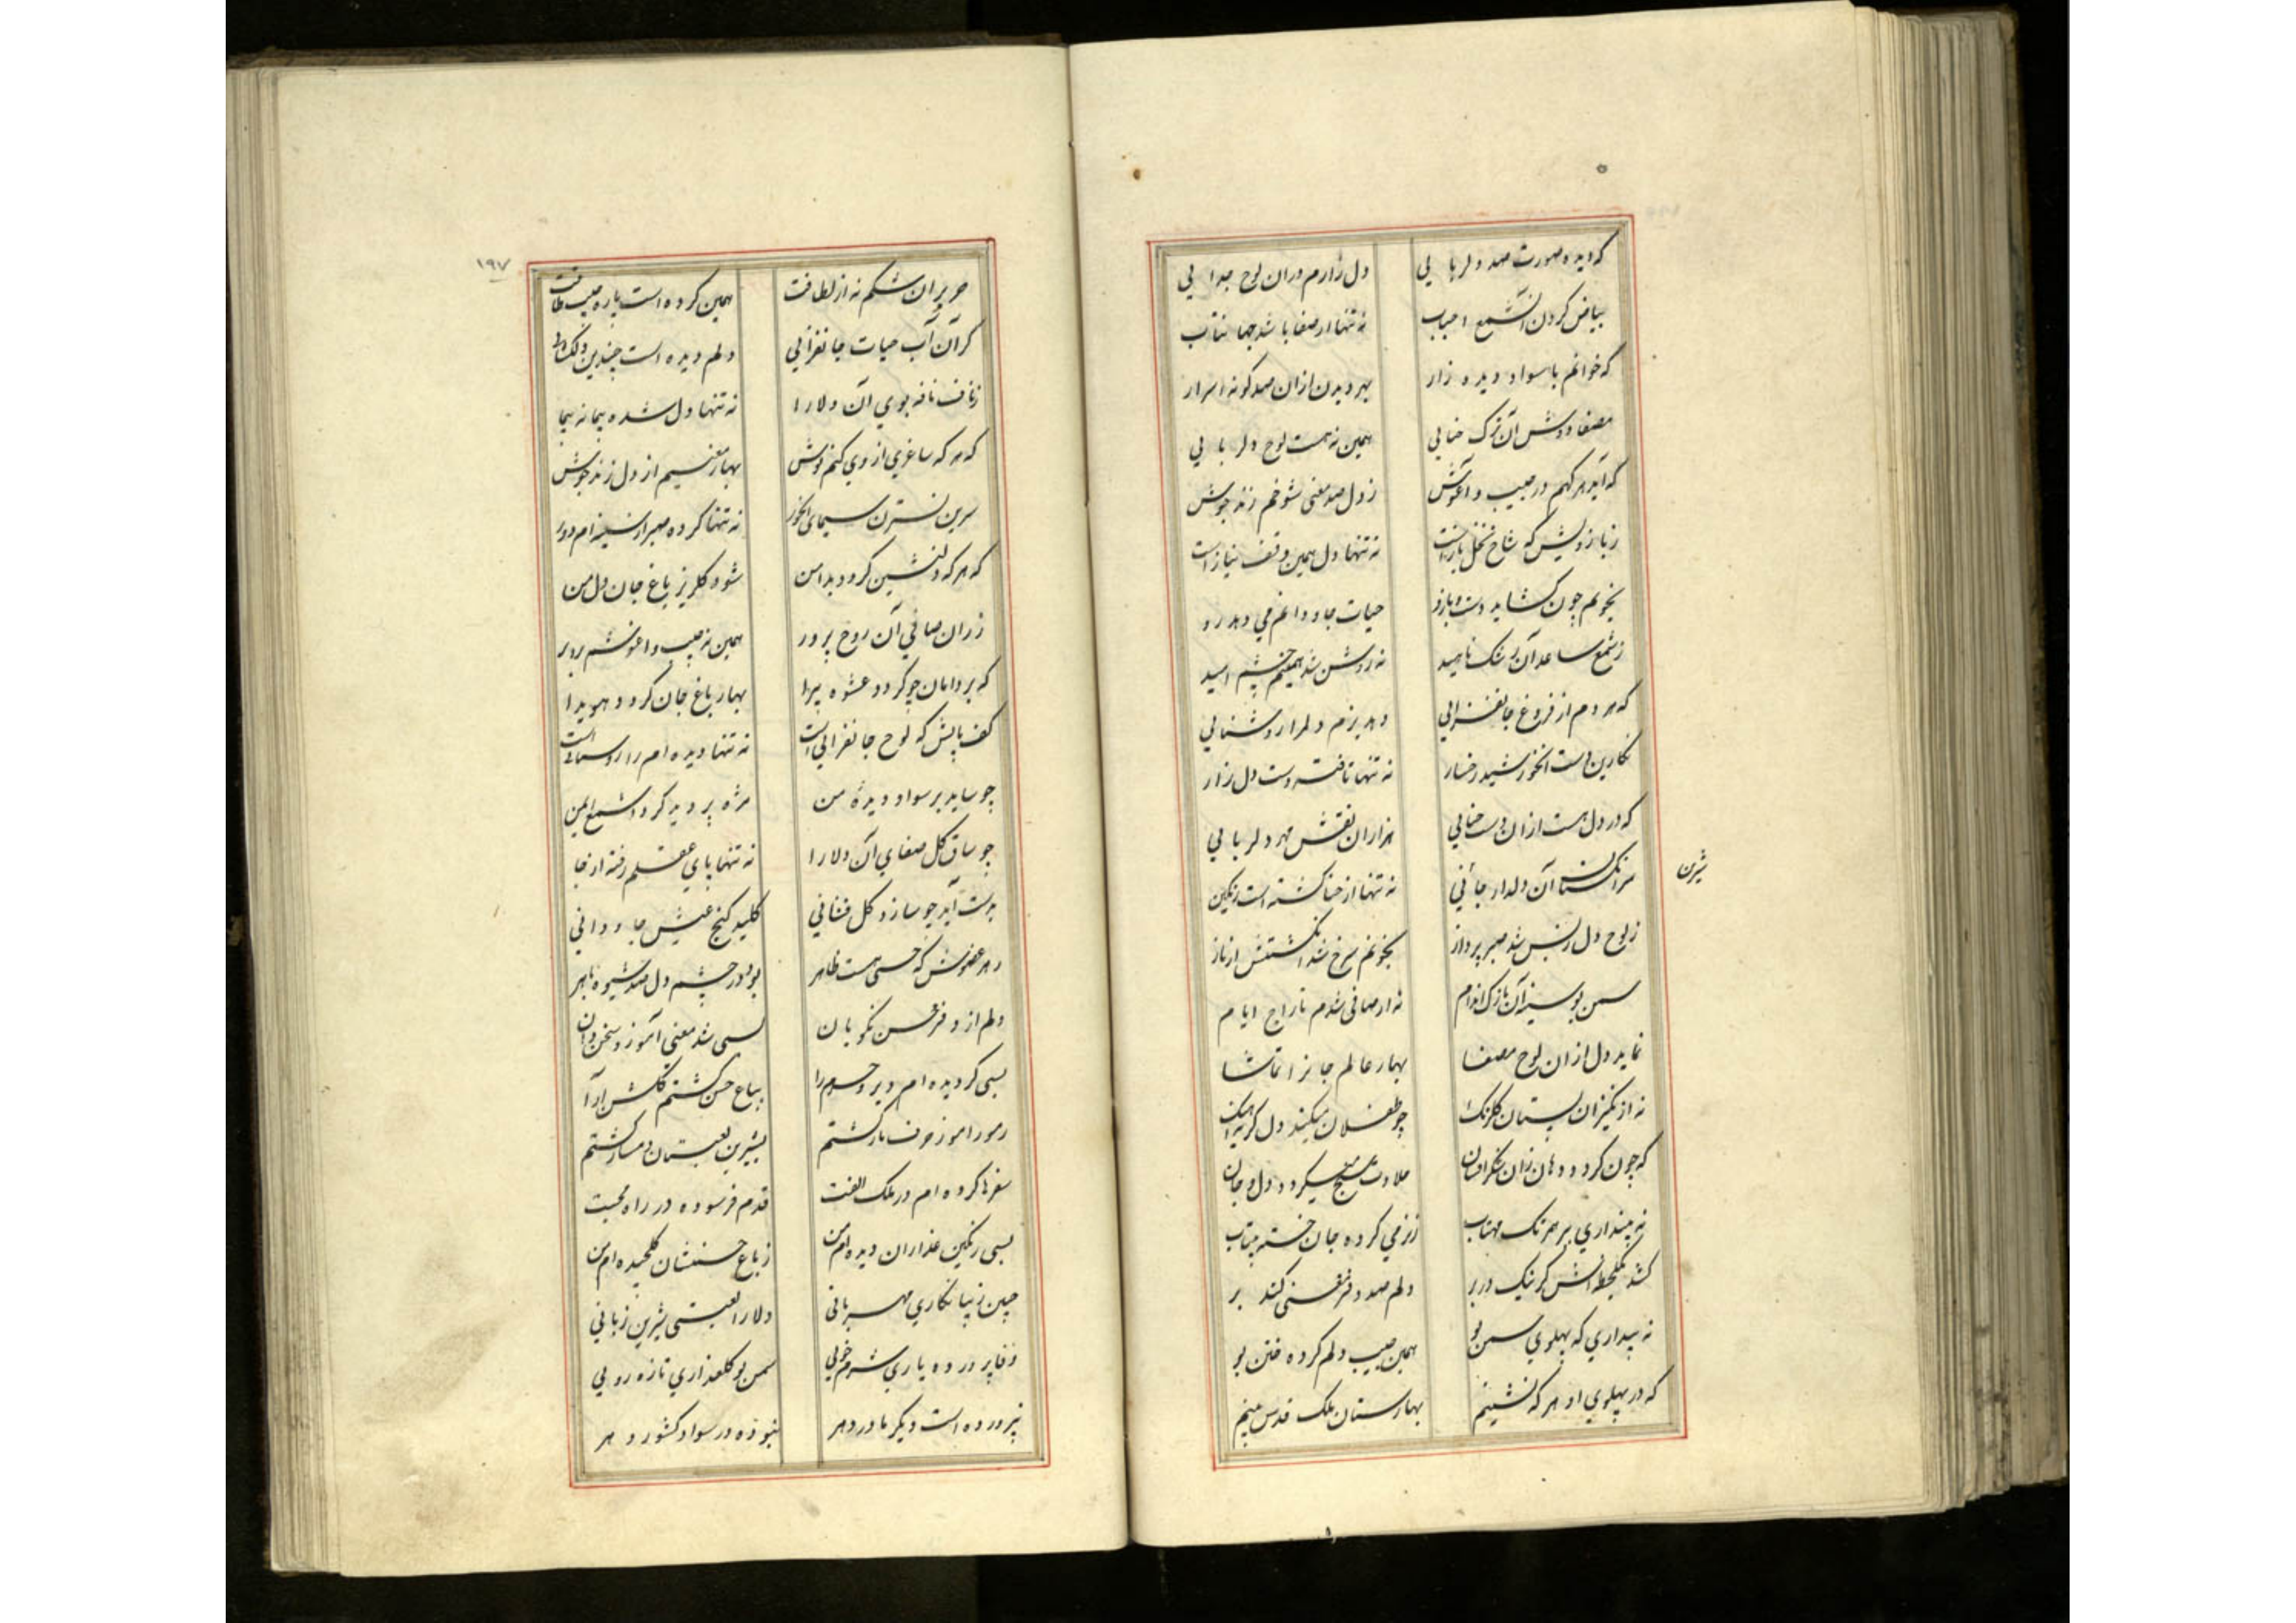 که دیده صورت صد دلربایی
دل زارم دران لوح جدایی
بیاض کردن آن شمع احباب
نه تنها از صفا باشد جهانتاب
که خوانم با سواد دیده زار
بهر دیدن ازان صد گونه اسرار
مصفا دوش آن ترک ختایی
همین نه هست لوح دلربایی
که آید هر گهم در جیب و آغوش
ز دل صد معنی شوخم زند جوش
ز بازویش که شاخ نخل
نه تنها دل همین وقف نیاز است
بخونم چون گشاید دست و بازو
حیات جاودانم می دهد رو
ز شمع ساعد آن رشک ناهید
نه روشن شد همینم چشم امید
که هر دم از فروغ جانفزایی
دهد بزم دلم را روشنایی
نگارین دست آنخورشید رخسار
نه تنها تافته دست دل زار
که در دل هست ازان دست حنایی
هزاران نقش مهر دلربایی
سرانگشتان آن دلدار جانی
نه تنها از حنا گشته است رنگین
شیرین
ز لوح دل زبس شد صبر پرداز
بخونم سرخ شد انگشتش از ناز
سمن بو سینه آن نازک اندام
نه از صافی شدم تاراج ایام
نماید دل ازان لوح مصفا
بهار عالم جانرا تماشا
نه از نگیزان پستان گلرنگ
چو طفلان میکند دل گریه
که چون گردد دهان زان شکرافشان
حلاوت سنج میگردد دل و جان
نه پنداری بر همرنگ مهتاب
ز نرمی کرده جان خسته بیتاب
کشد یکلحظه اش گر نیک در بر
دلم صد دفتر معنی کند بر
نه پنداری که پهلوی سمن بو
همین جیب دلم کرده ختن بو
که در پهلوی او هر گه نشینم
بهارستان ملک قدس بینم
۱۹۷
حریر آن شکم نه از لطافت
همین کرده است پاره جیب طاقت
کز آن آب حیات جانفزایی
دلم دیده است چندین
ز ناف نافه بوی آن دلارا
نه تنها دل شده پیمانه پیما
که هر گه ساغری از وی کنم نوش
بهار معنیم از دل زند جوش
سرین نسترن سیمای آنحور
نه تنها کرده صبر از سینه ام دور
که هر گه دلنشین گردد بدامن
شود گلریز باغ جان و دل من
ز ران صافی آن روح پرور
همین نه جیب و آغوشم
که بر دامان چو گردد عشوه پیرا
بهار باغ جان گردد هویدا
کف پایش که لوح جانفزایی است
نه تنها دیده ام را روشنایی است
چو ساید بر سواد دیده من
مژه بر دیده گردد شمع ایمن
چو ساق گل صفای آن دلارا
نه تنها پای عقلم رفته از جا
بدست آید چو سازد گل فشانی
کلید گنج عیش جاودانی
ز هر عضوش که حسنی هست ظاهر
بود در چشم دل صد شیوه باهر
دلم از دفتر حسن نکویان
بسی شد معنی آموز سخن دان
بسی گردیده ام دیر و حرم را
بباغ حسن گشتم گلشن آرا
رموز آموز حرف یار گشتم
بشیرین لعبتان دمساز گشتم
سفرها کرده ام در ملک الفت
قدم فرسوده در راه محبت
بسی رنگین عذاران دیده ام من
ز باغ حسنشان گلچیده ام من
چنین زیبا نگاری مهربانی
دلارا لعبتی شیرین زبانی
وفا پرورده یاری شرم خویی
سمن بو گلعذاری تازه رویی
نپرورده است دیگر مادر دهر
نبوده در سواد کشور دهر